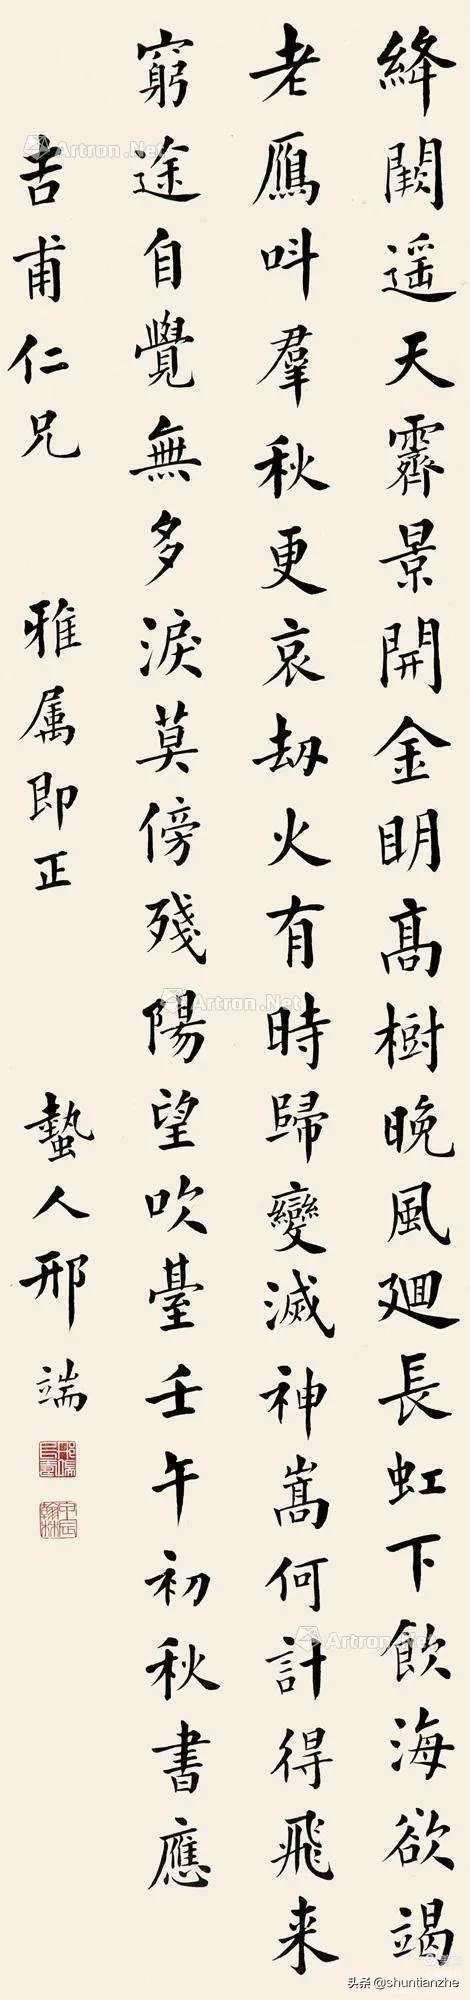 絳闕遥天霽景開金明高樹晚風迴長虹下飲海欲竭
老鴈叫羣秋更哀劫火有時歸變滅神嵩何計得飛来
窮途自覺無多淚莫傍殘陽望吹臺壬午初秋書應
吉甫仁兄
雅属即正
蟄人邢端
Artron.Net
Artron.Net
Artron.Net
Artron.Net
头条 @shuntianzhe